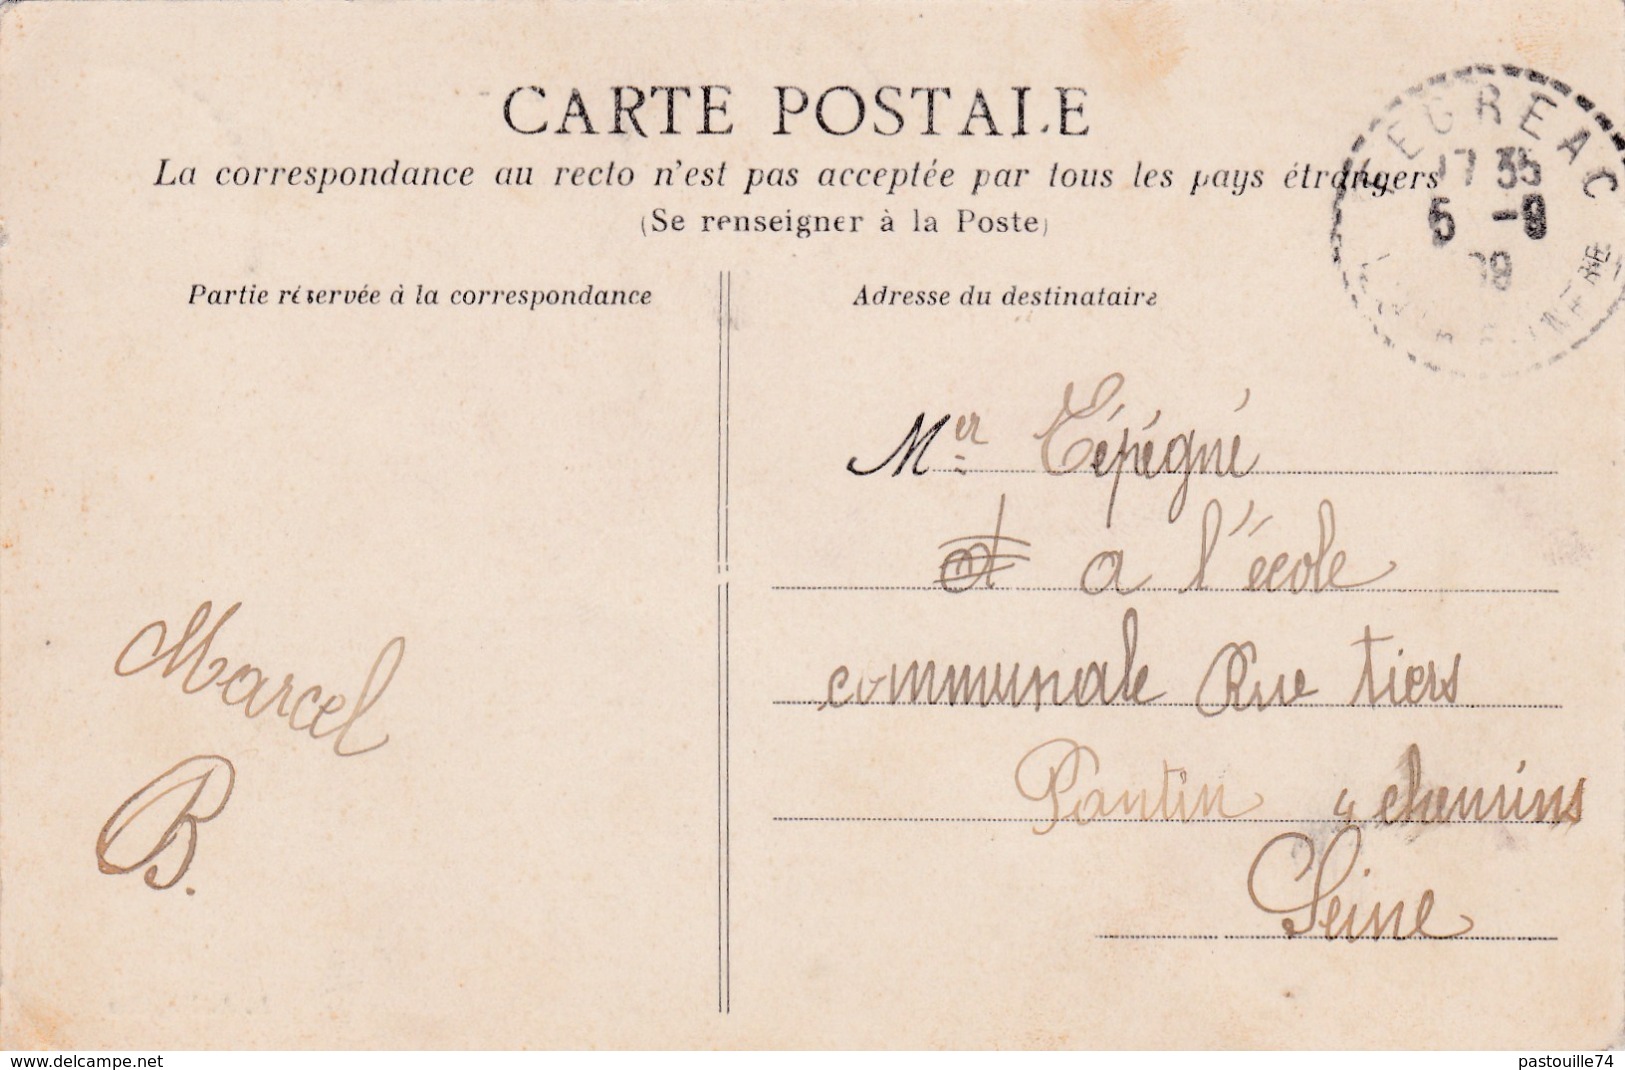 CARTE POSTALE
La correspondance au recto n'est pas acceptée par tous les pays étrangers
(Se renseigner à la Poste)
Partie réservée à la correspondance
Adresse du destinataire
EGREAC
17 35
5 -9
09
Mer Tépégné
a l'école
communale Rue tiers
Pantin 4 chemins
Seine
Marcel
B.
www.delcampe.net
pastouille74